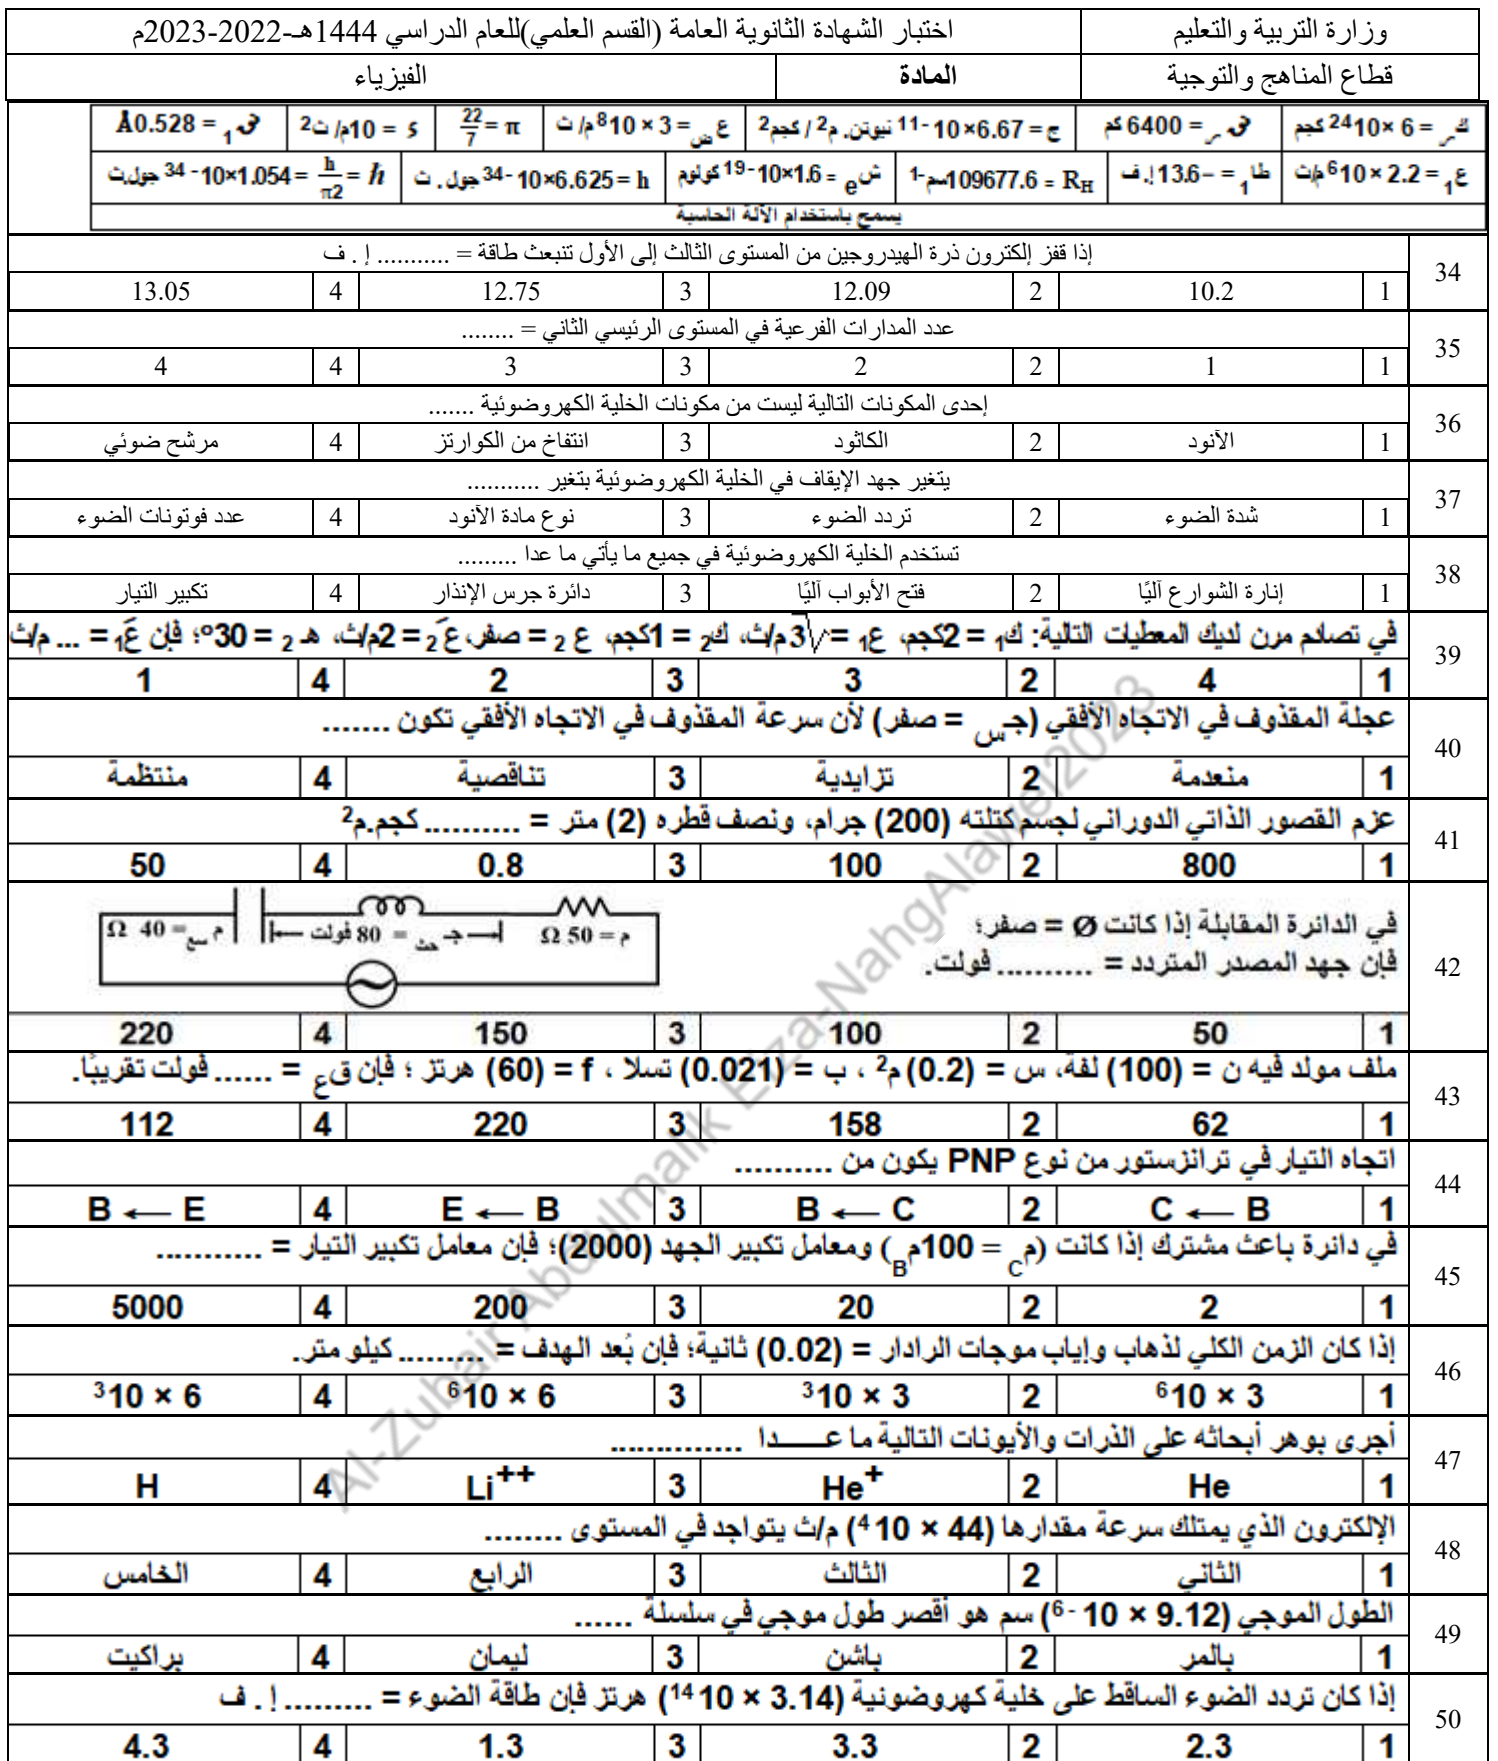 وزارة التربية والتعليم
اختبار الشهادة الثانوية العامة (القسم العلمي)للعام الدراسي 1444هـ-2022-2023م
قطاع المناهج والتوجية
المادة
الفيزياء
كس = 6 ×10²⁴ كجم
نوه س = 6400 كم
ج = 6.67×10⁻¹¹ نيوتن. م² / كجم²
ع ض = 3 × 10⁸ م/ ث
π = 22/7
ء = 10م/ ث²
نوه ₁ = 0.528Å
ع₁ = 2.2 × 10⁶م/ث
طا₁ = –13.6إ. ف
R_H = 109677.6سم⁻¹
ش e = 1.6×10⁻¹⁹ كولوم
h = 6.625×10⁻³⁴ جول . ث
ℏ = h/π2 = 1.054×10⁻³⁴ جول.ث
يسمح باستخدام الآلة الحاسبة
34
إذا قفز إلكترون ذرة الهيدروجين من المستوى الثالث إلى الأول تنبعث طاقة = ........... إ . ف
1 10.2 2 12.09 3 12.75 4 13.05
35
عدد المدارات الفرعية في المستوى الرئيسي الثاني = ........
1 1 2 2 3 3 4 4
36
إحدى المكونات التالية ليست من مكونات الخلية الكهروضوئية .......
1 الآنود 2 الكاثود 3 انتفاخ من الكوارتز 4 مرشح ضوئي
37
يتغير جهد الإيقاف في الخلية الكهروضوئية بتغير ...........
1 شدة الضوء 2 تردد الضوء 3 نوع مادة الآنود 4 عدد فوتونات الضوء
38
تستخدم الخلية الكهروضوئية في جميع ما يأتي ما عدا .........
1 إنارة الشوارع آليًا 2 فتح الأبواب آليًا 3 دائرة جرس الإنذار 4 تكبير التيار
39
في تصادم مرن لديك المعطيات التالية: ك₁ = 2كجم، ع₁ = √3 م/ث، ك₂ = 1كجم، ع ₂ = صفر، عَ₂ = 2م/ث، هـ ₂ = 30°؛ فإن عَ₁ = ... م/ث
1 4 2 3 3 2 4 1
40
عجلة المقذوف في الاتجاه الأفقي (جـس = صفر) لأن سرعة المقذوف في الاتجاه الأفقي تكون .......
1 منعدمة 2 تزايدية 3 تناقصية 4 منتظمة
41
عزم القصور الذاتي الدوراني لجسم كتلته (200) جرام، ونصف قطره (2) متر = .......... كجم.م²
1 800 2 100 3 0.8 4 50
42
في الدائرة المقابلة إذا كانت Ø = صفر؛
فإن جهد المصدر المتردد = .......... فولت.
م = 50 Ω
جـ حث = 80 فولت
م سع = 40 Ω
1 50 2 100 3 150 4 220
43
ملف مولد فيه ن = (100) لفة، س = (0.2) م² ، ب = (0.021) تسلا ، f = (60) هرتز ؛ فإن ق ع = ...... فولت تقريبًا.
1 62 2 158 3 220 4 112
44
اتجاه التيار في ترانزستور من نوع PNP يكون من ..........
1 C ⟵ B 2 B ⟵ C 3 E ⟵ B 4 B ⟵ E
45
في دائرة باعث مشترك إذا كانت (م C = 100م B) ومعامل تكبير الجهد (2000)؛ فإن معامل تكبير التيار = ...........
1 2 2 20 3 200 4 5000
46
إذا كان الزمن الكلي لذهاب وإياب موجات الرادار = (0.02) ثانية؛ فإن بُعد الهدف = ......... كيلو متر.
1 3 × 10⁶ 2 3 × 10³ 3 6 × 10⁶ 4 6 × 10³
47
أجرى بوهر أبحاثه على الذرات والأيونات التالية ما عـــــدا ..............
1 He 2 He⁺ 3 Li⁺⁺ 4 H
48
الإلكترون الذي يمتلك سرعة مقدارها (44 × 10⁴) م/ث يتواجد في المستوى ........
1 الثاني 2 الثالث 3 الرابع 4 الخامس
49
الطول الموجي (9.12 × 10⁻⁶) سم هو أقصر طول موجي في سلسلة ......
1 بالمر 2 باشن 3 ليمان 4 براكيت
50
إذا كان تردد الضوء الساقط على خلية كهروضوئية (3.14 × 10¹⁴) هرتز فإن طاقة الضوء = ......... إ . ف
1 2.3 2 3.3 3 1.3 4 4.3
Al-Zubair Abdulmalik Etza-NahgAlawel2023